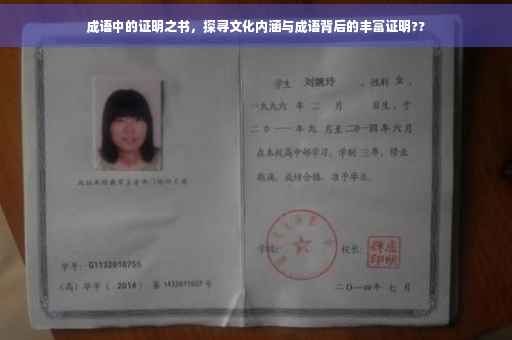 成语中的证明之书，探寻文化内涵与成语背后的丰富证明??
学生 刘婉玲 ，性别 女 ，
一九九六 年 二 月 日生，于
二〇一一年九 月至二〇一四年 六月
在本校高中部学习，学制 三年，修业
期满，成绩合格，准予毕业。
学校：
校长：
学号：G1132010755
（高）毕字（ 2014 ）第 1432011027 号
二〇一四年 七 月